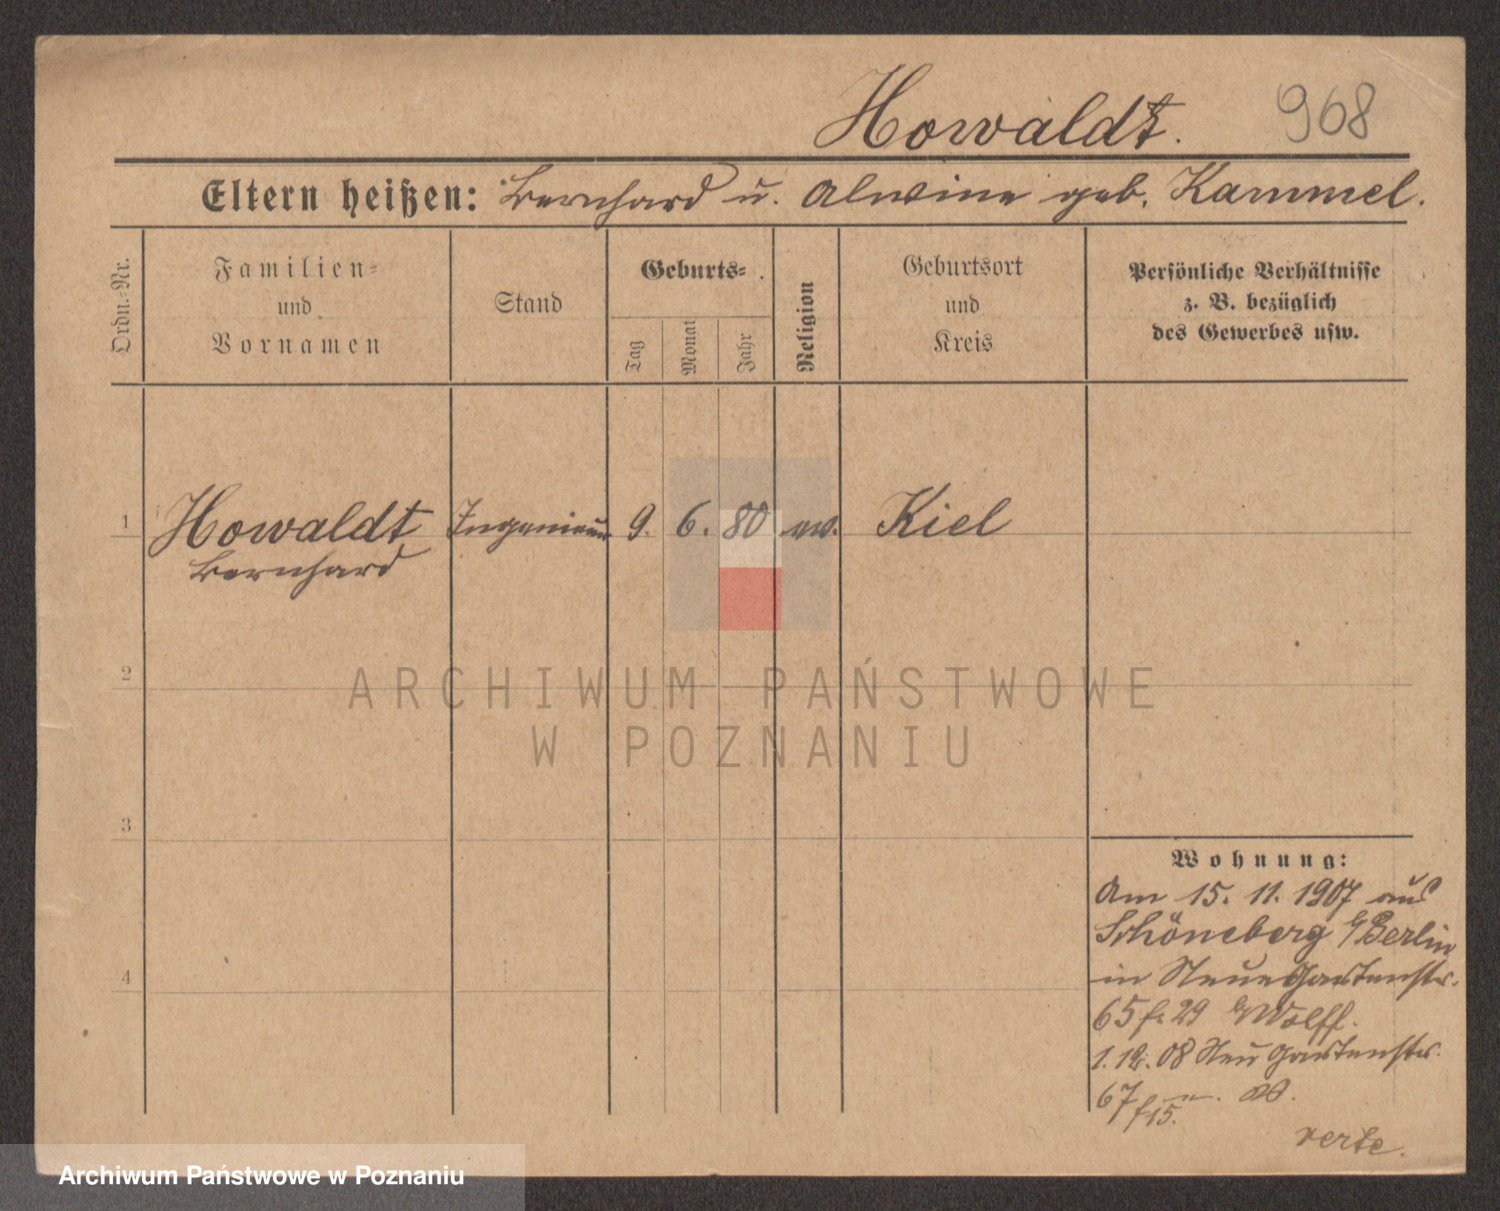 Howaldt. 968
Eltern heißen: Bernhard u. Alwine geb. Kammel.
Ordn.-Nr.
Familien-
und
Vornamen
Stand
Geburts-
Tag
Monat
Jahr
Religion
Geburtsort
und
Kreis
Persönliche Verhältnisse
z. B. bezüglich
des Gewerbes usw.
1 Howaldt Ingenieur 9. 6. 80 ev. Kiel
Bernhard
2
ARCHIWUM PAŃSTWOWE
W POZNANIU
3
4
Wohnung:
Am 15. 11. 1907 aus
Schöneberg b/Berlin
in Neue Gartenstr.
65 f. 29 b/Wolff.
1. 12. 08 Neu Gartenstr.
67 f 15.
verte.
Archiwum Państwowe w Poznaniu